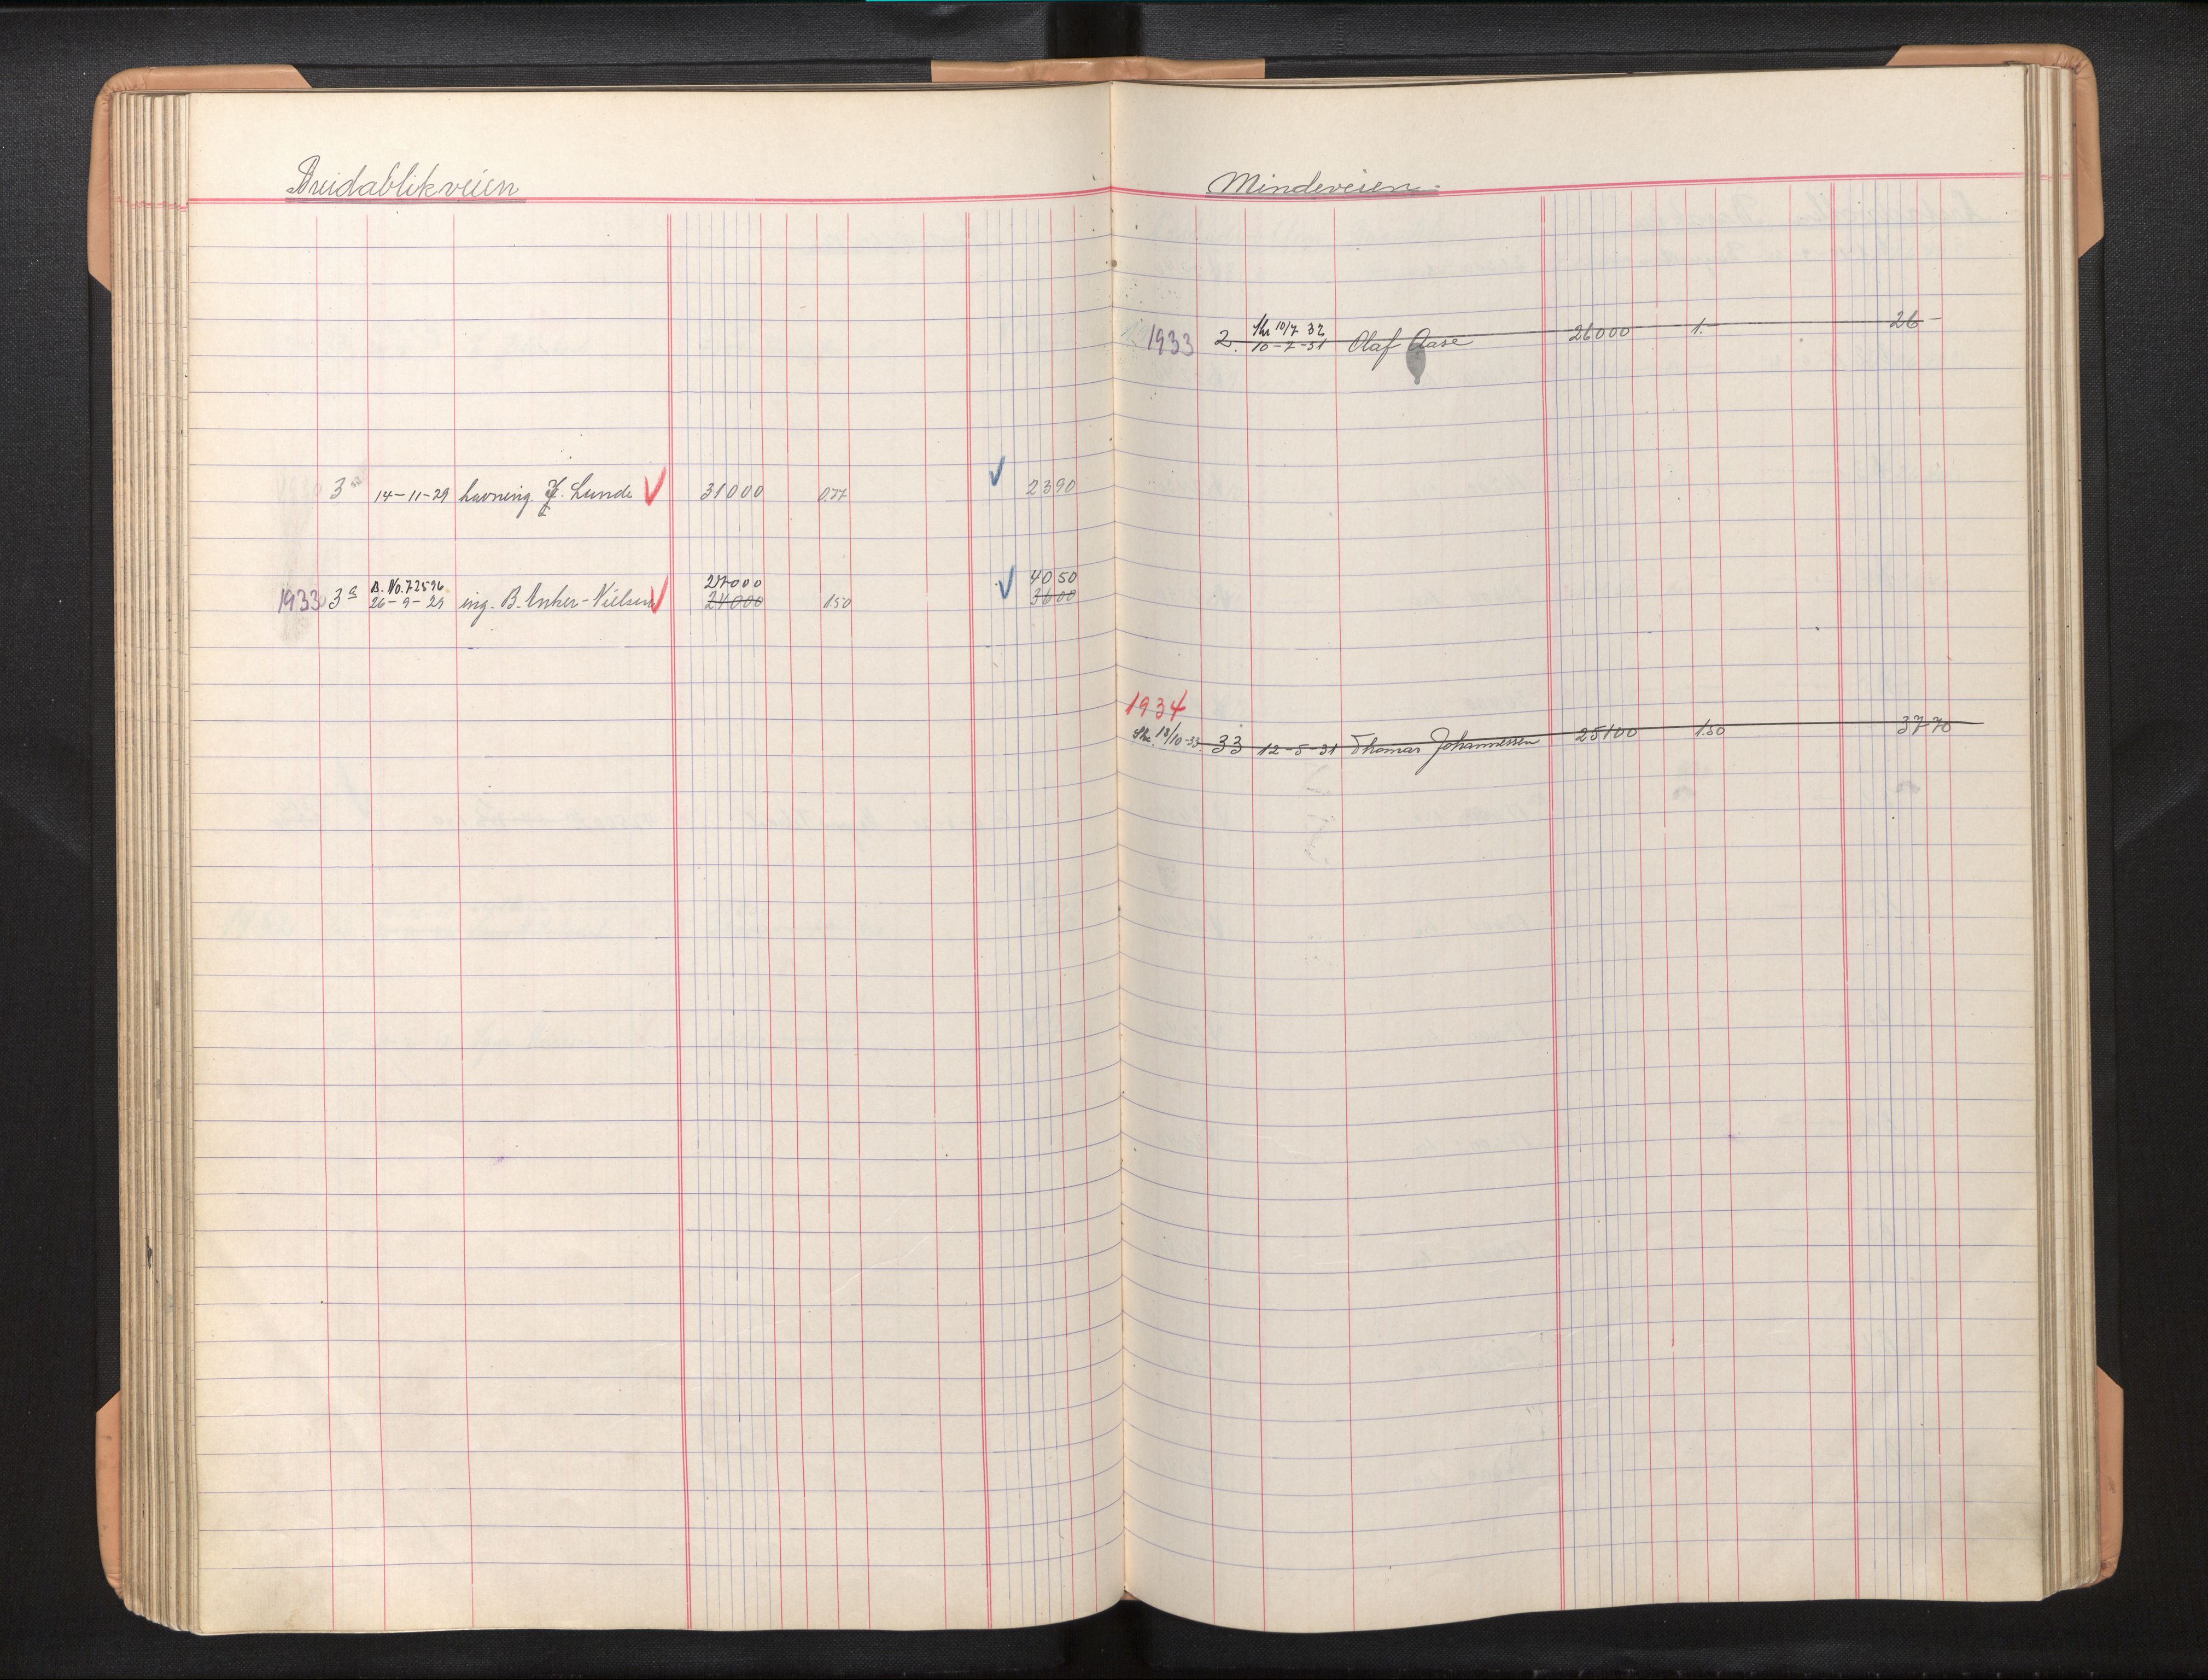 Breidablikveien
3 14-11-29 havneing. J. Lunde 31000 0.77 2390
B. No. 72596 27000 4050
1933 3a 26-9-29 ing. B. Anker-Nielsen 24000 1.50 3600
Mindeveien
Skr 10/7 32
1933 2. 10-7-31 Olaf Aase 26000 1.- 26-
1934
Skr. 18/10-33 33 12-5-31 Thomas Johannessen 25100 1.50 3770